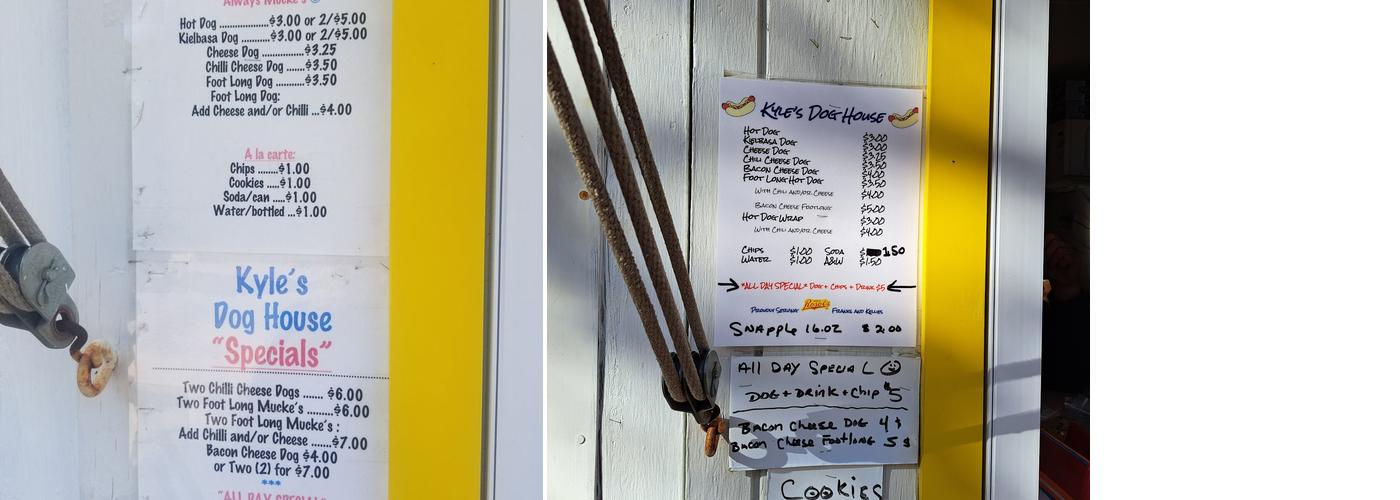 Always Mucke's
Hot Dog ...............$3.00 or 2/$5.00
Kielbasa Dog .........$3.00 or 2/$5.00
Cheese Dog .............$3.25
Chilli Cheese Dog ......$3.50
Foot Long Dog .........$3.50
Foot Long Dog:
Add Cheese and/or Chilli ...$4.00
A la carte:
Chips .......$1.00
Cookies .....$1.00
Soda/can .....$1.00
Water/bottled ...$1.00
Kyle's
Dog House
"Specials"
Two Chilli Cheese Dogs ..... $6.00
Two Foot Long Mucke's ........$6.00
Two Foot Long Mucke's :
Add Chilli and/or Cheese .......$7.00
Bacon Cheese Dog $4.00
or Two (2) for $7.00
***
"ALL DAY SPECIAL
Kyle's Dog House
Hot Dog $3.00
Kielbasa Dog $3.00
Cheese Dog $3.25
Chili Cheese Dog $3.50
Bacon Cheese Dog $4.00
Foot Long Hot Dog $3.50
With Chili and/or Cheese $4.00
Bacon Cheese Footlong $5.00
Hot Dog Wrap $3.00
With Chili and/or Cheese $4.00
Chips $1.00 Soda $1.50
Water $1.00 A&W $1.50
*All Day Special* Dog + Chips + Drink $5
Proudly Serving Franks and Kelbies
Snapple 16.oz $2.00
All Day Special
Dog + Drink + Chip $5
Bacon Cheese Dog 4$
Bacon Cheese Footlong 5$
Cookies